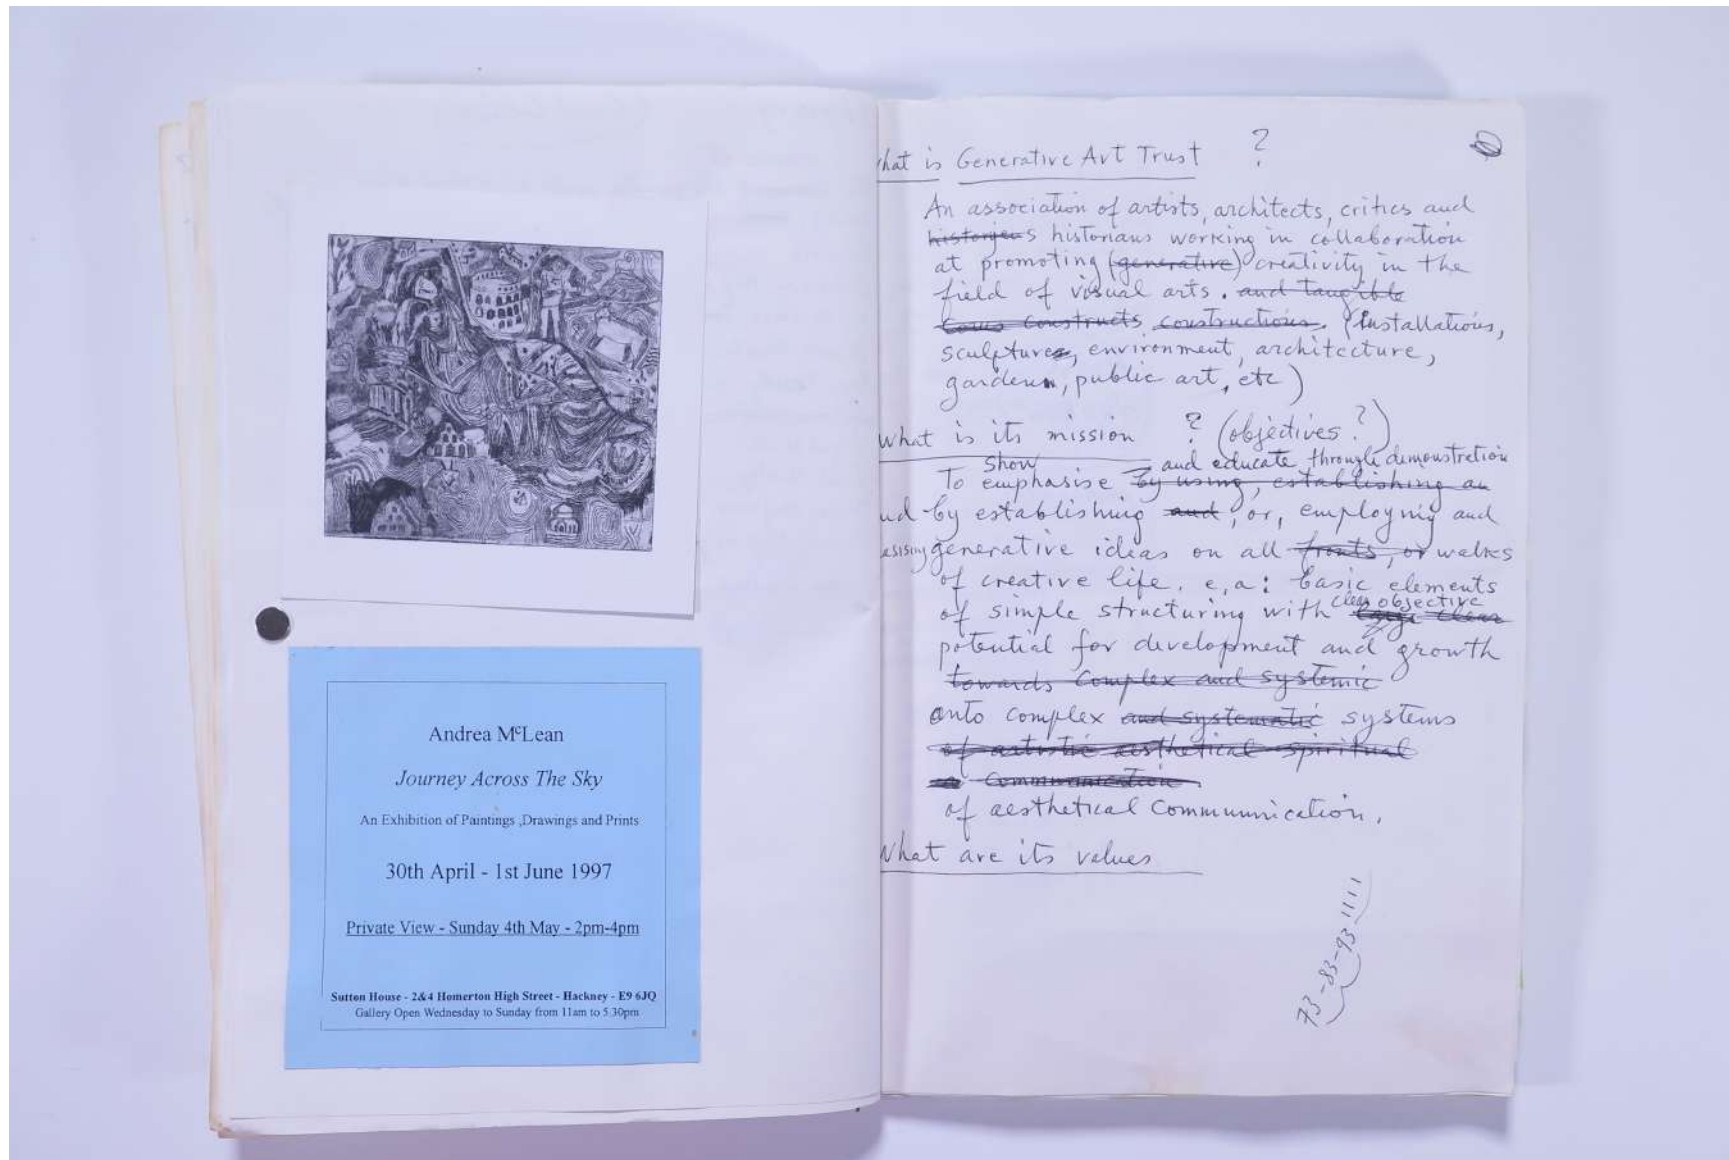 Andrea McLean
Journey Across The Sky
An Exhibition of Paintings ,Drawings and Prints
30th April - 1st June 1997
Private View - Sunday 4th May - 2pm-4pm
Sutton House - 2&4 Homerton High Street - Hackney - E9 6JQ
Gallery Open Wednesday to Sunday from 11am to 5.30pm
hat is Generative Art Trust ?
An association of artists, architects, critics and
historians working in collaboration
at promoting (generative) creativity in the
field of visual arts. and tangible
constructs constructions. (installations,
sculptures, environment, architecture,
garden, public art, etc)
What is its mission ? (objectives?)
show and educate through demonstration
To emphasise by using, establishing an
nd by establishing and, or, employnig and
generative ideas on all fronts, or walkes
of creative life. e,a: basic elements
clear objective
of simple structuring with clear
potential for development and growth
towards complex and systemic
onto complex and systematic systems
of artistic aesthetical spiritual
communication.
of aesthetical communication.
What are its values
73-83-93 1111